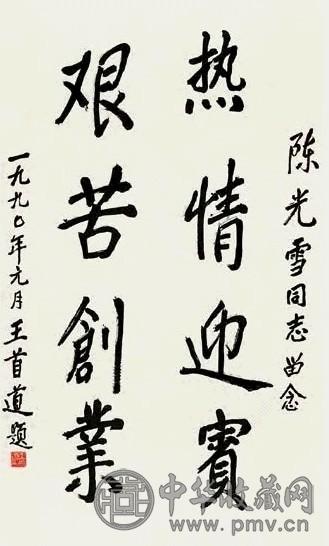 陈光雪同志留念
热情迎賓
艰苦創業
一九九〇年元月王首道題
中华收藏网
www.pmv.cn